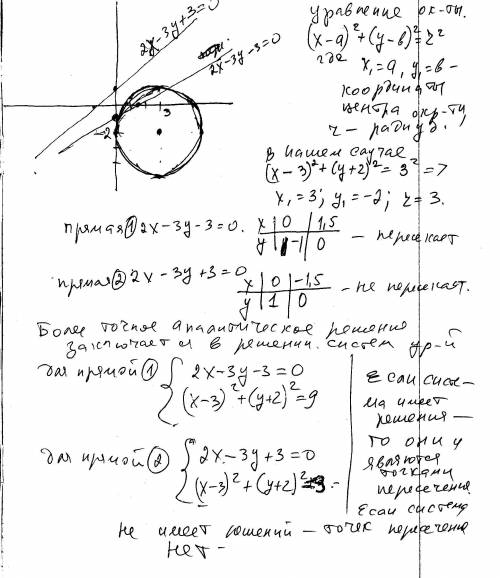 уравнение ок-ты.
(x-a)²+(y-в)²=r²
где
x₁=a, y₁=в -
координаты
центра окр-ти,
r - радиус.
2x-3y+3=0
2x-3y-3=0
3
-2
в нашем случае
(x-3)²+(y+2)²=3²=>
x₁=3; y₁=-2; r=3.
прямая ① 2x-3y-3=0. x | 0 | 1,5
y | -1 | 0 - пересекает
прямая ② 2x-3y+3=0 x | 0 | -1,5
y | 1 | 0 - не пересекает.
Более точное аналитическое решение
заключается в решении систем ур-й
для прямой ① { 2x-3y-3=0
(x-3)²+(y+2)²=9
для прямой ② { 2x-3y+3=0
(x-3)²+(y+2)²=9.-
Если систе-
ма имеет
решения -
то они и
являются
точками
пересечения
Если система
не имеет решений - точек пересечения
нет -